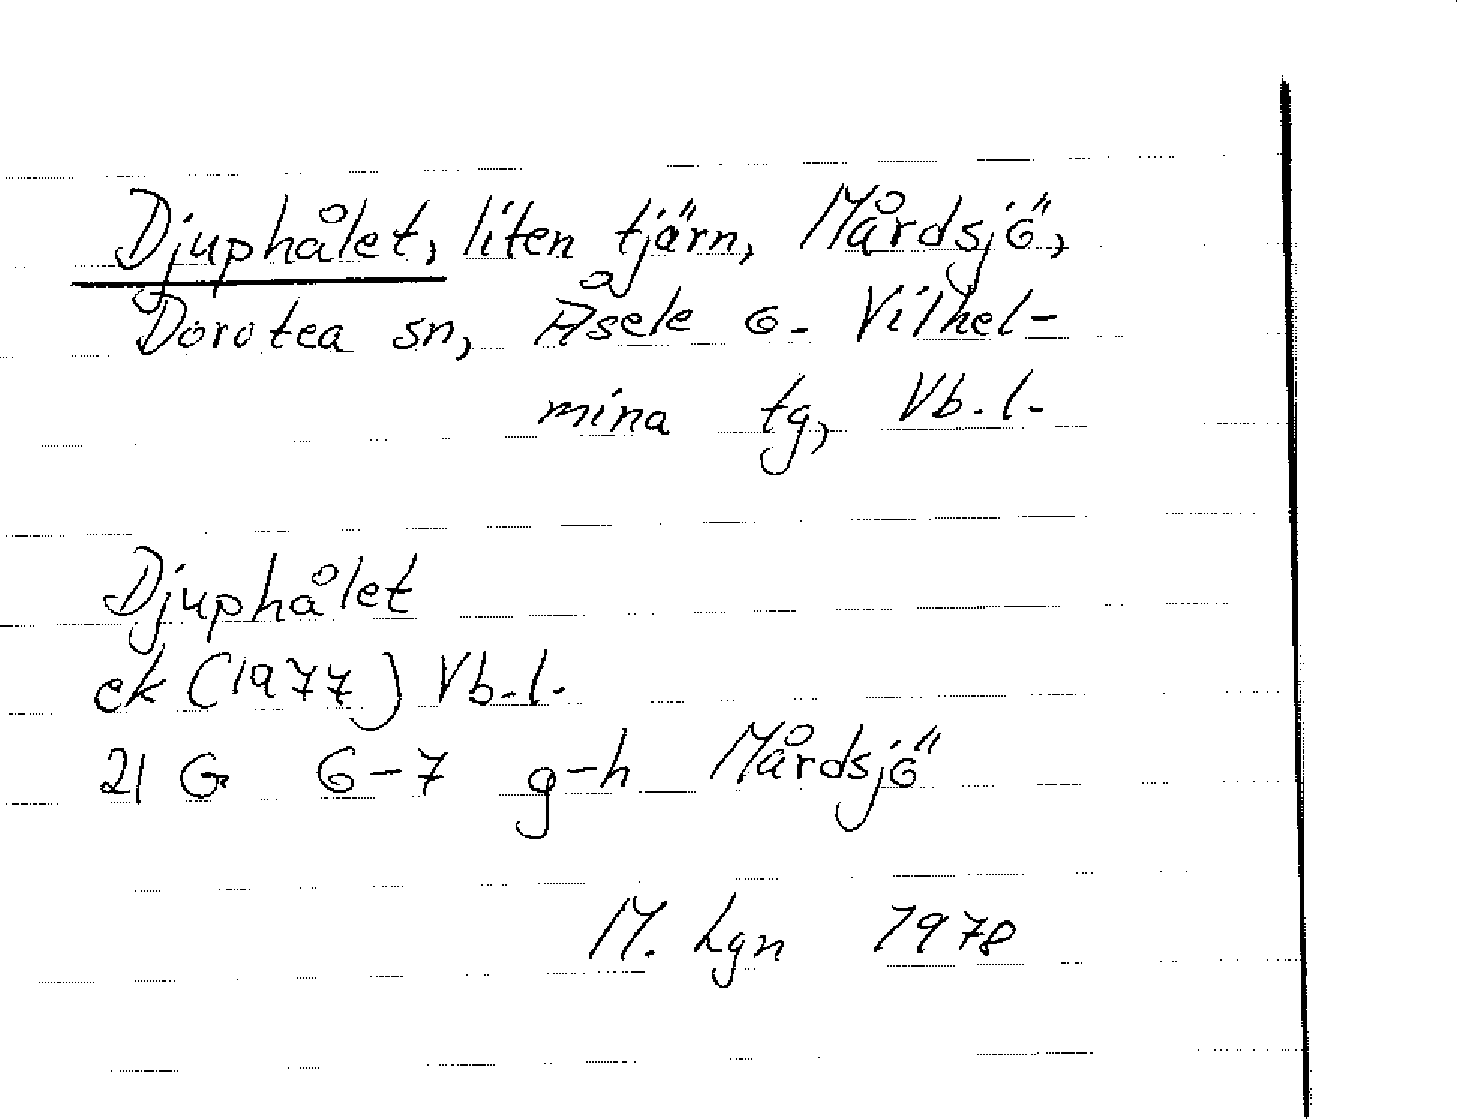 Djuphålet, liten tjärn, Mårdsjö,
Dorotea sn, Åsele o. Vilhel-
mina tg, Vb. l.
Djuphålet
ek (1977) Vb. l.
21 G 6-7 g-h Mårdsjö
M. Lgn 1978